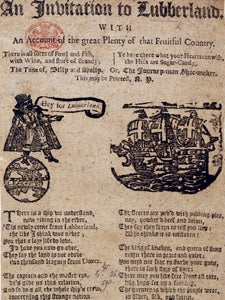 An Invitation to Lubberland,
WITH
An Account of the great Plenty of that Fruitful Country.
There is all sorts of Fowl and Fish,
with Wine, and store of Brandy;
Ye have there what your Hearts can wish,
the Hills are Sugar-Candy,
The Tune of, Billy and Molly, Or, The Journey-man Shoe-maker.
This may be Printed, R. P.
Hey for Lubberland.
There is a ship we understand,
now riding in the river,
'Tis newly come from Lubberland,
the like I think was never;
you that a lazy life do love,
I'd have you now go over,
They say the land is not above
two thousand leagues from Dover.
The captain and the master too,
do's give us this relation,
And so do's all the whole ship's crew,
concerning this strange nation:
The streets are pav'd with pudding-pies,
nay, powder'd beef and bacon,
They say they scorn to tell you lies;
who thinks it is mistaken.
The king of knaves, and queen of sluts
reign there in peace and quiet;
You need not fear to starve your guts,
there is such store of diet:
There may you live free from all care,